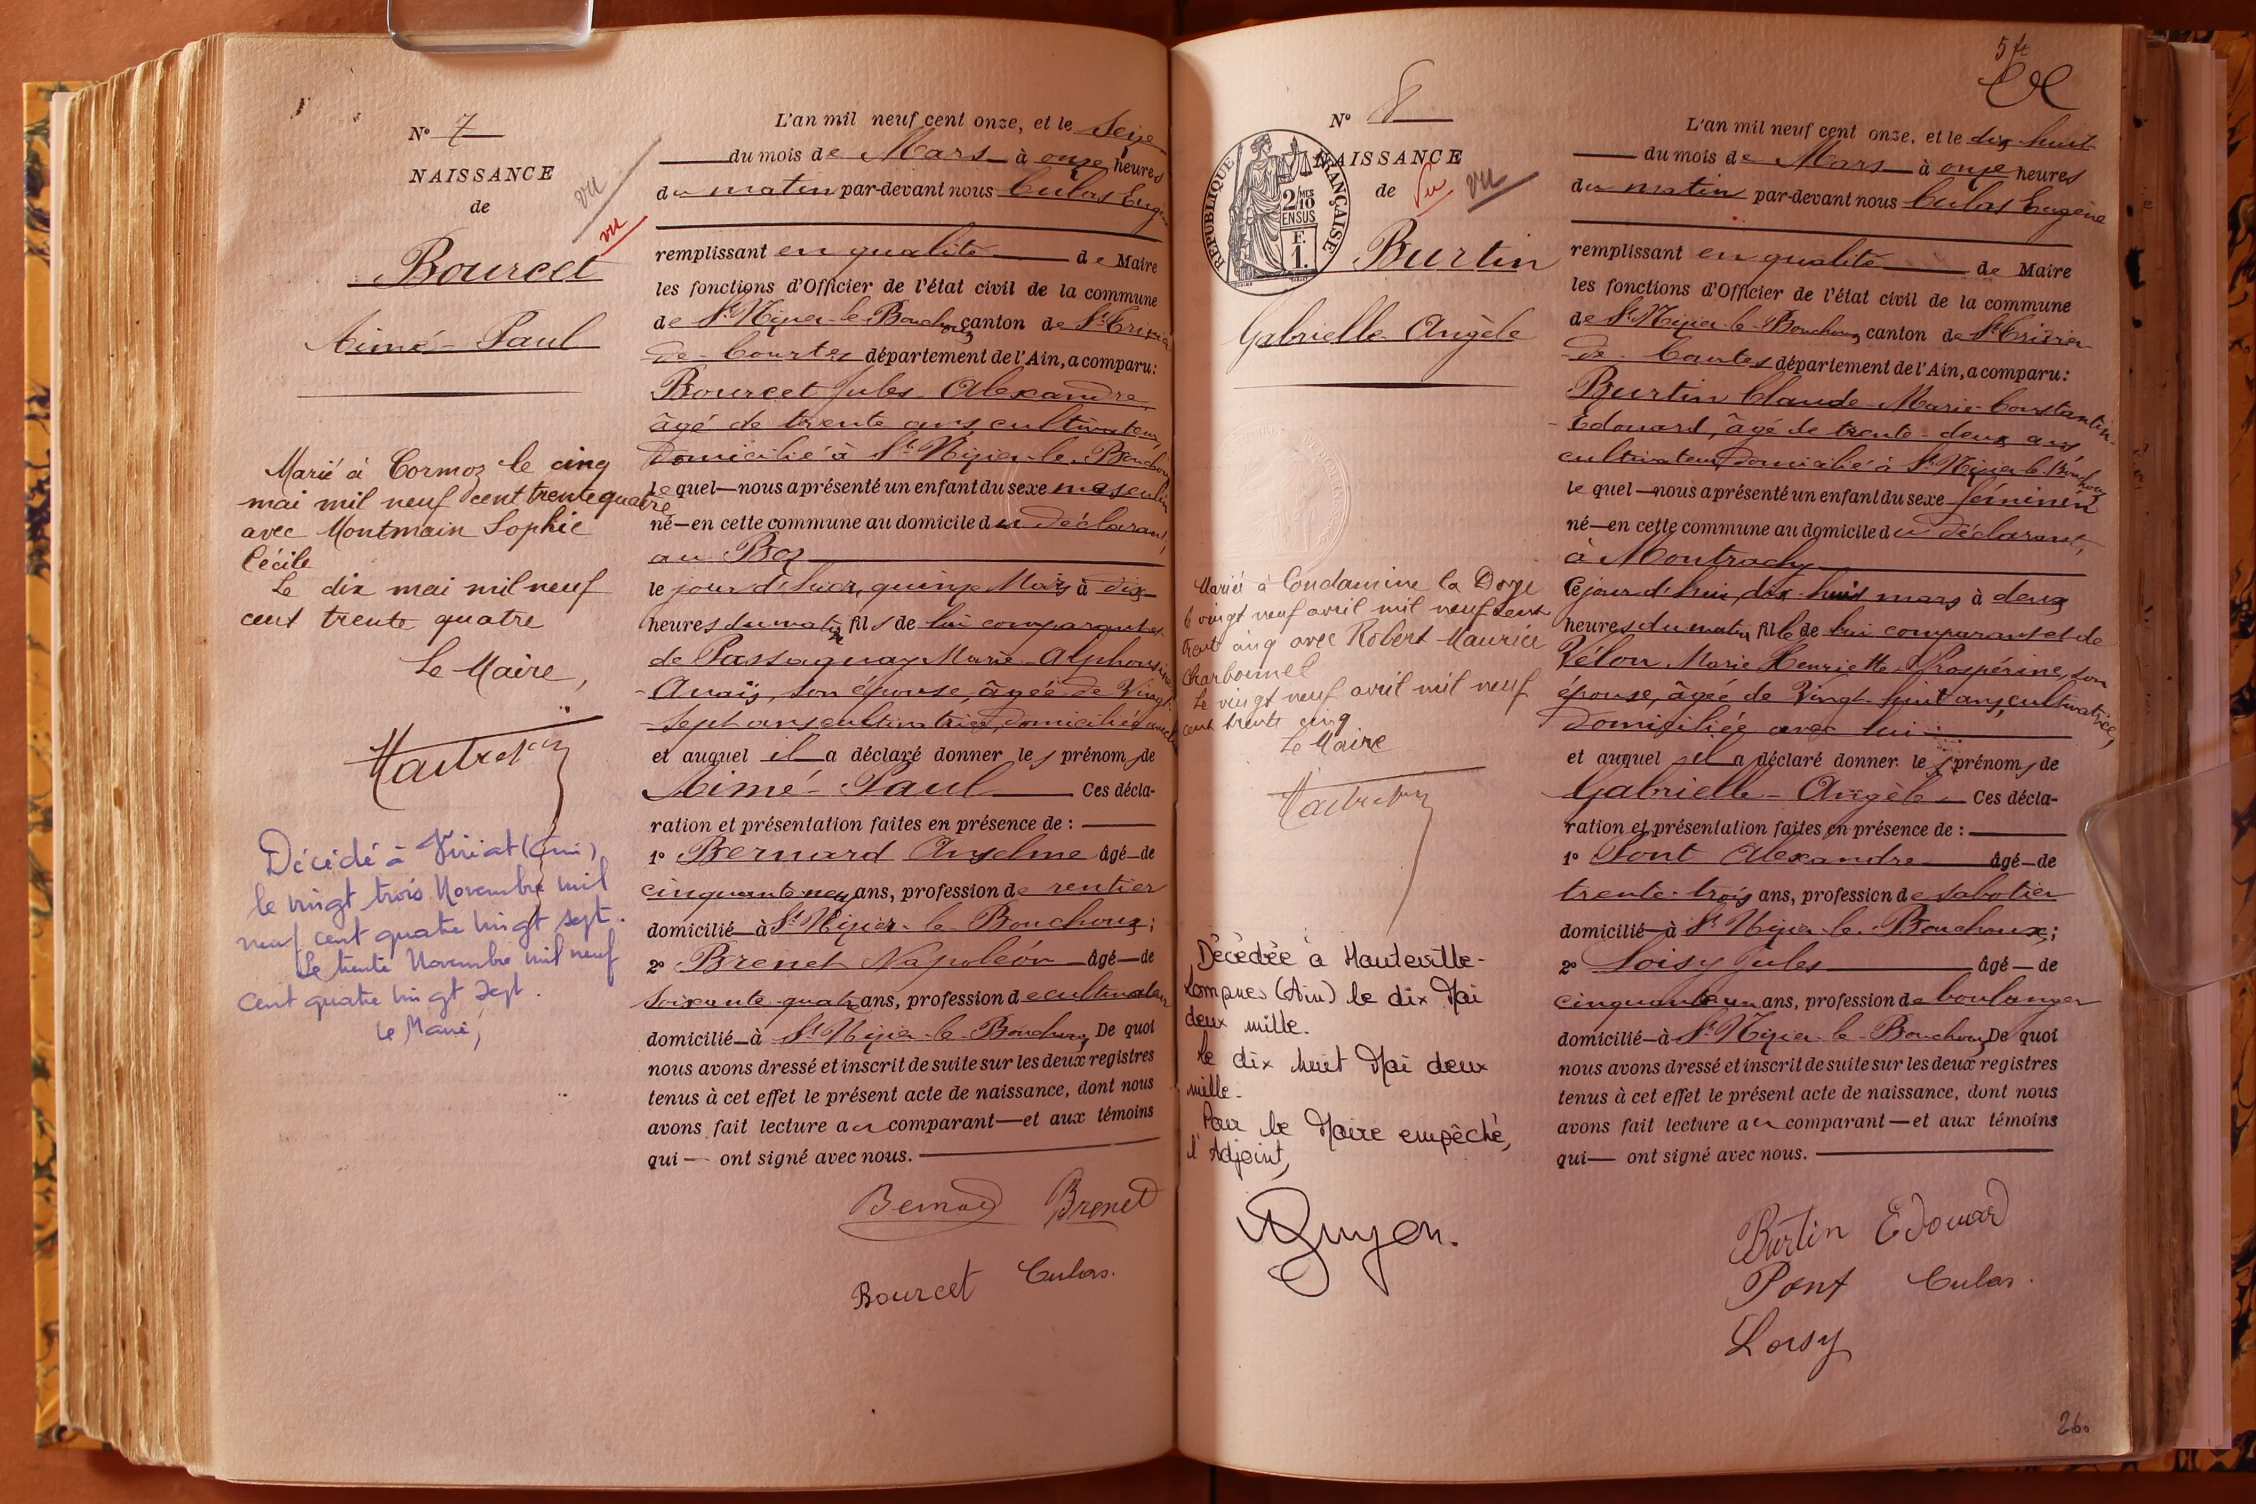 N° 7
NAISSANCE
de
vu
vu
Bourcet
Aimé-Paul
Marié à Cormoz le cinq
mai mil neuf cent trente quatre
avec Montmain Sophie
Cécile
Le dix mai mil neuf
cent trente quatre
Le Maire,
Décédé à Viriat (Ain)
le vingt trois Novembre mil
neuf cent quatre vingt sept.
Le trente Novembre mil neuf
cent quatre vingt sept.
Le Maire,
L'an mil neuf cent onze, et le seize
du mois de Mars à onze heures
du matin par-devant nous Culas Eugène
remplissant en qualité de Maire
les fonctions d'Officier de l'état civil de la commune
de St Nizier-le-Bouchoux canton de St Trivier
de-Courtes département de l'Ain, a comparu:
Bourcet Jules Alexandre,
âgé de trente ans, cultivateur,
domicilié à St Nizier-le-Bouchoux
lequel nous a présenté un enfant du sexe masculin
né en cette commune au domicile du déclarant,
au Boz
le jour d'hier, quinze Mars à dix
heures du matin fils de lui comparant et
de Passaquay Marie-Alphonsine
Anaïs, son épouse, âgée de vingt-
sept ans, cultivatrice, domiciliée avec lui
et auquel il a déclaré donner les prénoms de
Aimé-Paul Ces décla-
ration et présentation faites en présence de :
1° Bernard Anselme âgé de
cinquante-neuf ans, profession de rentier
domicilié à St Nizier-le-Bouchoux;
2° Brenet Napoléon âgé de
soixante-quatre ans, profession de cultivateur
domicilié à St Nizier-le-Bouchoux, De quoi
nous avons dressé et inscrit de suite sur les deux registres
tenus à cet effet le présent acte de naissance, dont nous
avons fait lecture au comparant et aux témoins
qui ont signé avec nous.
Bernard Brenet
Bourcet Culas.
5 ft
N° 8
NAISSANCE
de
Vu
vu
RÉPUBLIQUE FRANÇAISE
2/10 MES
EN SUS
F.
1.
Burtin
Gabrielle-Angèle
Mariée à Condamine la Doye
le vingt neuf avril mil neuf cent
trente cinq avec Robert Maurice
Charbonnel
Le vingt neuf avril mil neuf
cent trente cinq
Le Maire
Décédée à Hauteville-
Lompnes (Ain) le dix Mai
deux mille.
Le dix huit Mai deux
mille.
Pour le Maire empêché,
l'Adjoint,
L'an mil neuf cent onze, et le dix-huit
du mois de Mars à onze heures
du matin par-devant nous Culas Eugène
remplissant en qualité de Maire
les fonctions d'Officier de l'état civil de la commune
de St Nizier-le-Bouchoux canton de St Trivier
de-Courtes département de l'Ain, a comparu:
Burtin Claude-Marie-Constantin-
Edouard, âgé de trente-deux ans
cultivateur, domicilié à St Nizier-le-Bouchoux
lequel nous a présenté un enfant du sexe féminin
né en cette commune au domicile du déclarant,
à Montrachy
Ce jour d'hui, dix-huit mars à deux
heures du matin fille de lui comparant et de
Vélon Marie Henriette Prospérine, son
épouse, âgée de vingt-huit ans, cultivatrice,
domiciliée avec lui
et auquel il a déclaré donner les prénoms de
Gabrielle-Angèle Ces décla-
ration et présentation faites en présence de :
1° Pont Alexandre âgé de
trente-trois ans, profession de sabotier
domicilié à St Nizier-le-Bouchoux;
2° Loisy Jules âgé de
cinquante un ans, profession de boulanger
domicilié à St Nizier-le-Bouchoux, De quoi
nous avons dressé et inscrit de suite sur les deux registres
tenus à cet effet le présent acte de naissance, dont nous
avons fait lecture au comparant et aux témoins
qui ont signé avec nous.
Burtin Edouard
Pont Culas.
Loisy
26.